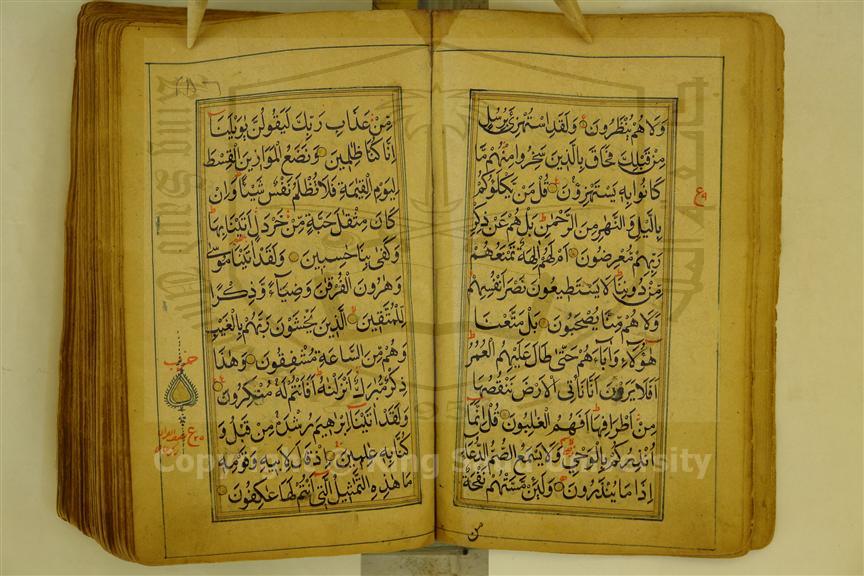 ولا هم ينظرون ولقد استهزئ برسل
من قبلك فحاق بالذين سخروا منهم ما
كانوا به يستهزؤن قل من يكلؤكم
باليل والنهار من الرحمن بل هم عن ذكر
ربهم معرضون ام لهم الهة تمنعهم
من دوننا لا يستطيعون نصر انفسهم
ولا هم منا يصحبون بل متعنا
هؤلاء واباءهم حتى طال عليهم العمر
افلا يرون انا ناتى الارض ننقصها
من اطرافها افهم الغلبون قل انما
انذركم بالوحى ولا يسمع الصم الدعاء
اذا ما ينذرون ولئن مستهم نفحة
من
من عذاب ربك ليقولن يويلنا
انا كنا ظلمين ونضع الموازين القسط
ليوم القيمة فلا تظلم نفس شيئا وان
كان مثقال حبة من خردل اتينا بها
وكفى بنا حسبين ولقد اتينا موسى
وهرون الفرقان وضياء وذكرا
للمتقين الذين يخشون ربهم بالغيب
وهم من الساعة مشفقون وهذا
ذكر مبرك انزلنه افانتم له منكرون
ولقد اتينا ابرهيم رشده من قبل و
كنا به علمين اذ قال لابيه وقومه
ما هذه التماثيل التى انتم لها عكفون
Copyright © King Saud University